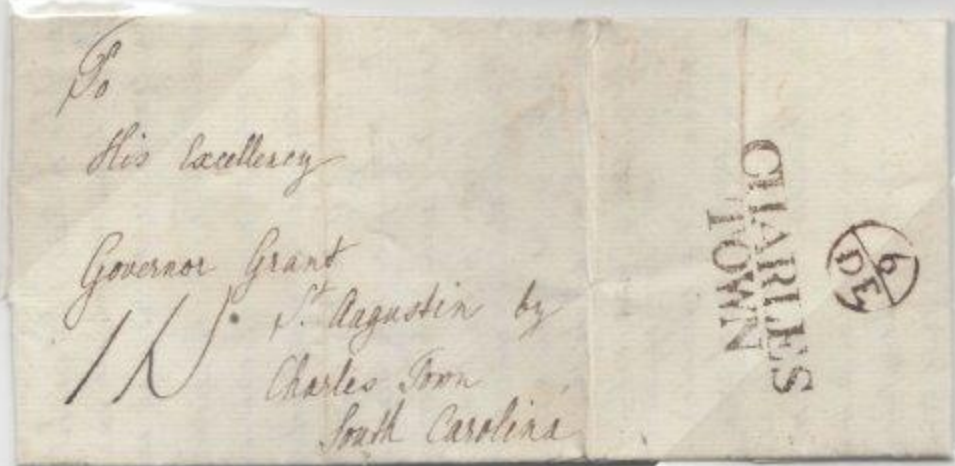 To
His Excellency
Governor Grant
St Augustin by
Charles Town
South Carolina
CHARLES
TOWN
9
DE